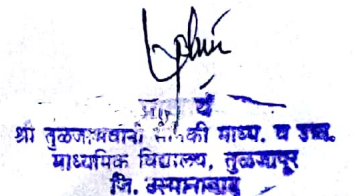 श्री तुळजाभवानी सैनिकी माध्य. व उच्च.
माध्यमिक विद्यालय, तुळजापूर
जि. उस्मानाबाद